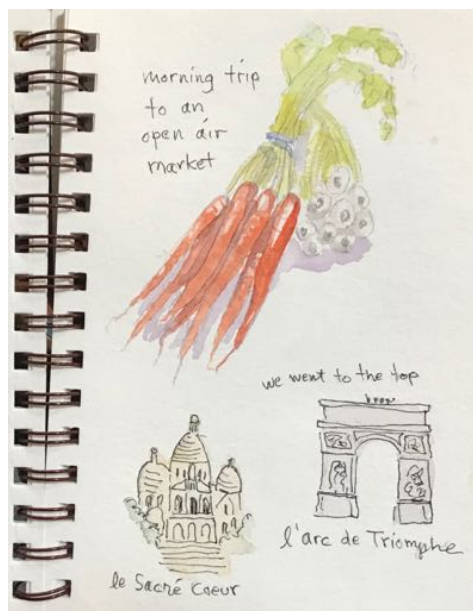 morning trip
to an
open air
market
we went to the top
l'arc de Triomphe
le Sacré Coeur